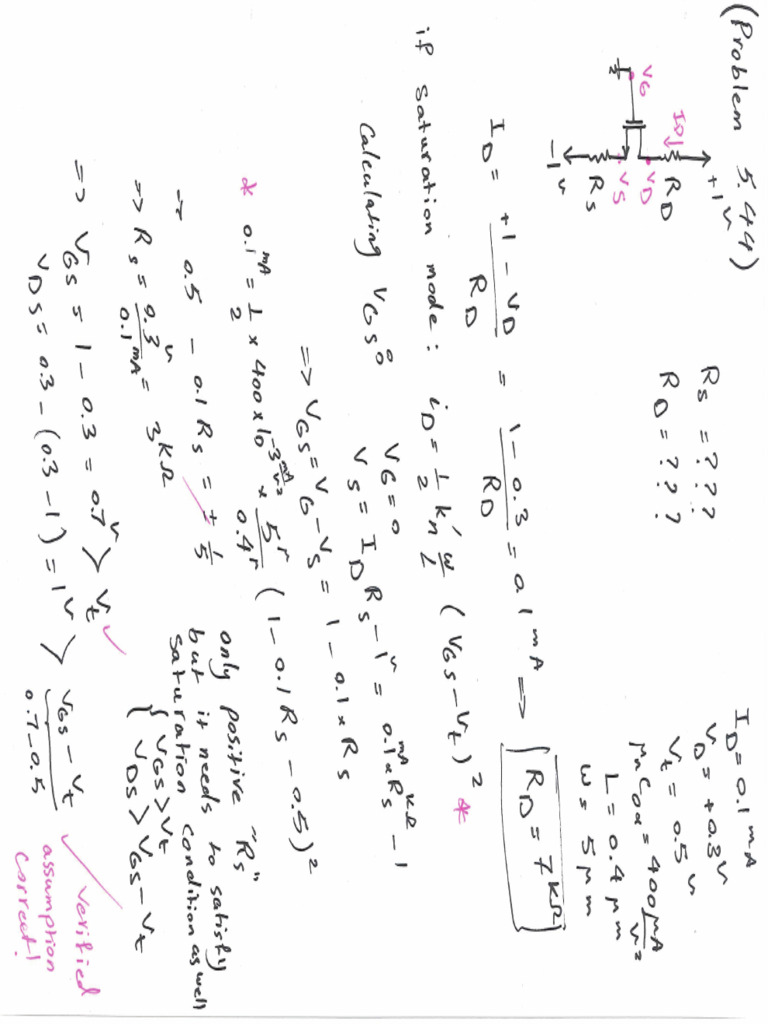 (Problem 5.44)
+1v
RD
ID
VD
VG
VS
RS
-1v
Rs = ???
RD = ???
ID = 0.1 mA
VD = +0.3 v
Vt = 0.5 v
μnCox = 400 μA/v²
L = 0.4 μm
W = 5 μm
ID = (+1 - VD)/RD = (1 - 0.3)/RD = 0.1 mA => RD = 7 kΩ
if saturation mode: iD = 1/2 k'n W/L (VGS - Vt)² *
Calculating VGS: VG = 0
VS = ID RS - 1v = 0.1 mA × RS kΩ - 1
=> VGS = VG - VS = 1 - 0.1 × RS
* 0.1 mA = 1/2 × 400 × 10⁻³ mA/v² × 5μ/0.4μ (1 - 0.1 RS - 0.5)²
→ 0.5 - 0.1 RS = ± 1/5
only positive "Rs"
but it needs to satisfy
saturation condition as well
{ VGS > Vt
VDS > VGS - Vt
=> RS = 0.3 v/0.1 mA = 3 kΩ
=> VGS = 1 - 0.3 = 0.7 v > Vt ✓
VDS = 0.3 - (0.3 - 1) = 1 v > VGS - Vt ✓
0.7 - 0.5
verified
assumption
correct!